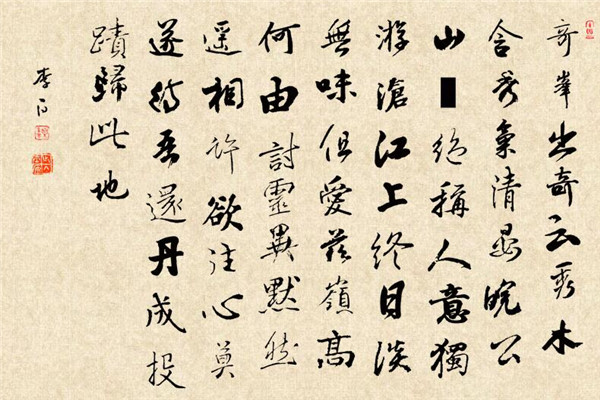 奇峯出奇云秀木
含秀氣清晏皖公
山絕稱人意獨
游滄江上終日淡
無味但愛茲嶺高
何由討靈異默然
遥相許欲往心莫
遂待吾還丹成投
蹟歸此地
李